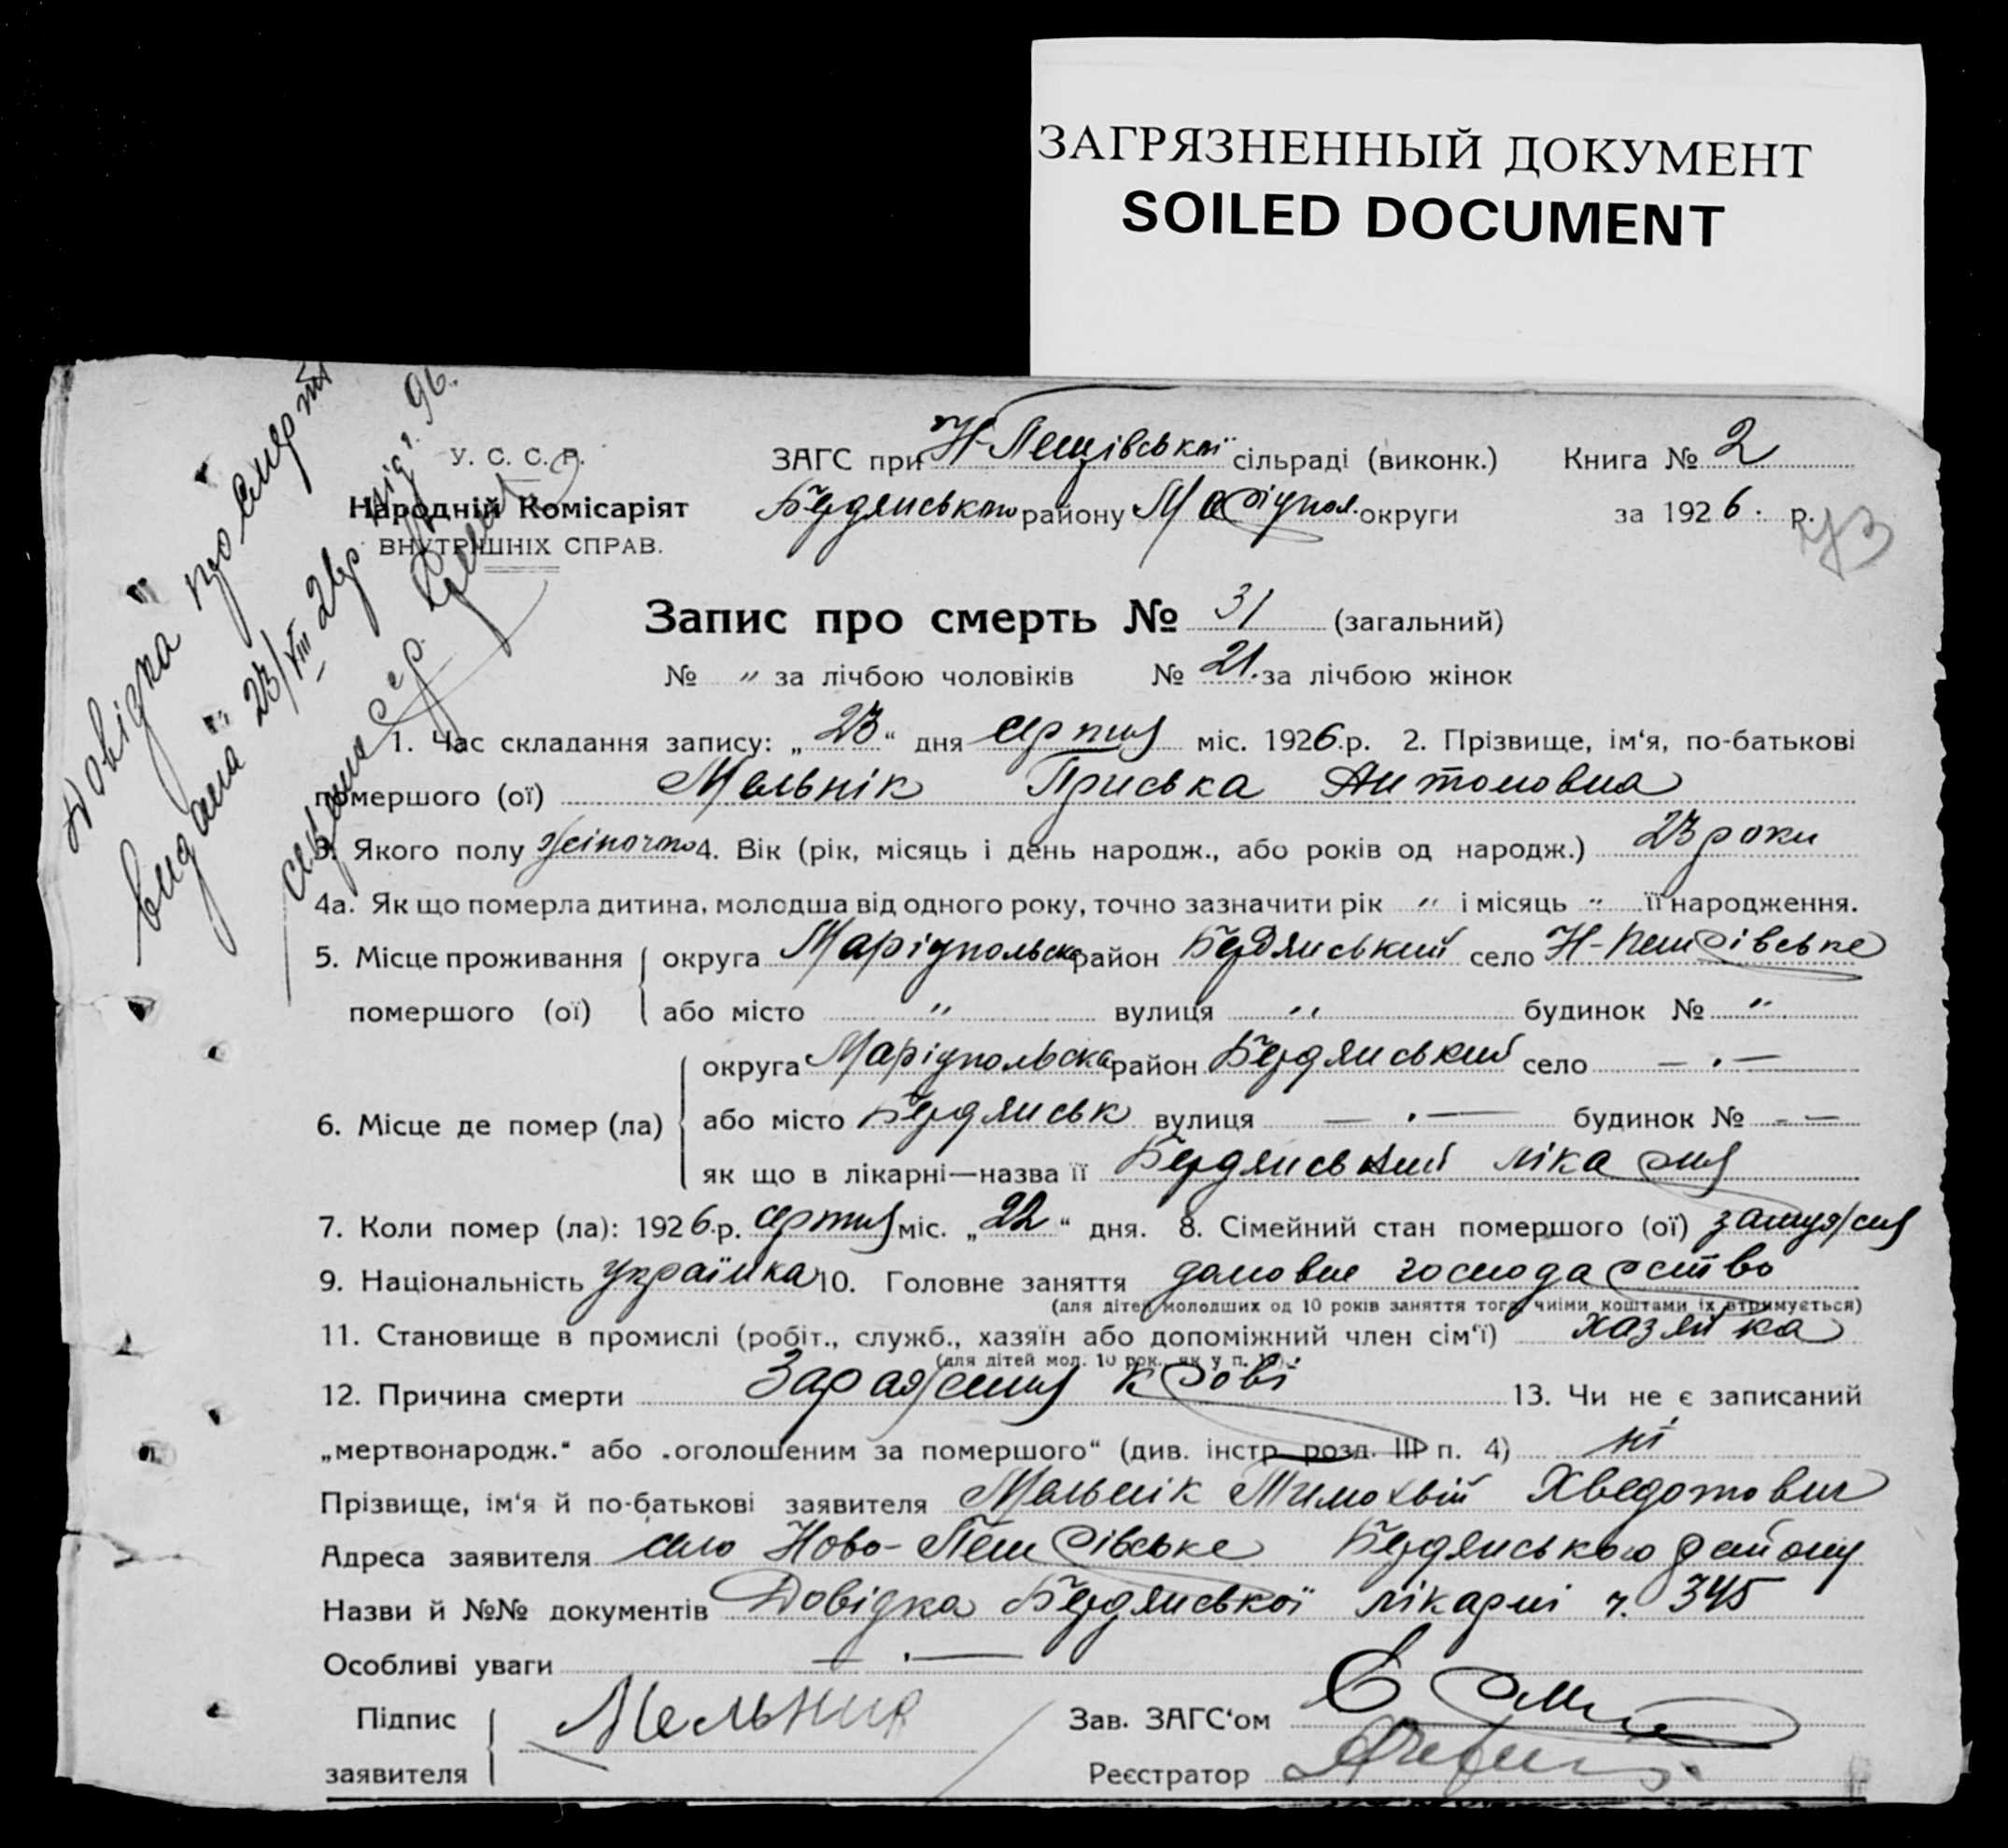 ЗАГРЯЗНЕННЫЙ ДОКУМЕНТ
SOILED DOCUMENT
Довідка про смерть
видана 23/VIII 26р. під ч. 96.
У. С. С. Р.
Народній Комісаріят
ВНУТРІШНІХ СПРАВ.
ЗАГС при Н-Петрівській сільраді (виконк.) Книга № 2
Бердянського району Маріупол. округи за 1926. р.
Запис про смерть № 31 (загальний)
№ " за лічбою чоловіків № 21. за лічбою жінок
1. Час складання запису: „23“ дня серпня міс. 1926.р. 2. Прізвище, ім‘я, по-батькові
помершого (ої) Мельнік Приська Антоновна
3. Якого полу жіночого 4. Вік (рік, місяць і день народж., або років од народж.) 23 роки
4а. Як що померла дитина, молодша від одного року, точно зазначити рік " і місяць " її народження.
5. Місце проживання округа Маріупольська район Бердянський село Н-Петрівське
помершого (ої) або місто " вулиця " будинок № "
округа Маріупольська район Бердянський село — . —
6. Місце де помер (ла) або місто Бердянськ вулиця — . — будинок № — —
як що в лікарні—назва її Бердянський лікарня
7. Коли помер (ла): 1926.р. серпня міс. „22“ дня. 8. Сімейний стан помершого (ої) замужня
9. Національність українка 10. Головне заняття домовне господарство
(для дітей молодших од 10 років заняття того, чиїми коштами їх втримується)
11. Становище в промислі (робіт., служб., хазяїн або допоміжний член сім‘ї) хазяйка
(для дітей мол. 10 рок., як у п. 10).
12. Причина смерти Зараження крові 13. Чи не є записаний
„мертвонародж.“ або „оголошеним за помершого“ (див. інстр. розд. III п. 4) ні
Прізвище, ім‘я й по-батькові заявителя Мельнік Тимохвій Хведотович
Адреса заявителя село Ново-Петрівське Бердянського району
Назви й №№ документів Довідка Бердянської лікарні ч. 345
Особливі уваги — . —
Підпис Мельник Зав. ЗАГС‘ом
заявителя Реєстратор